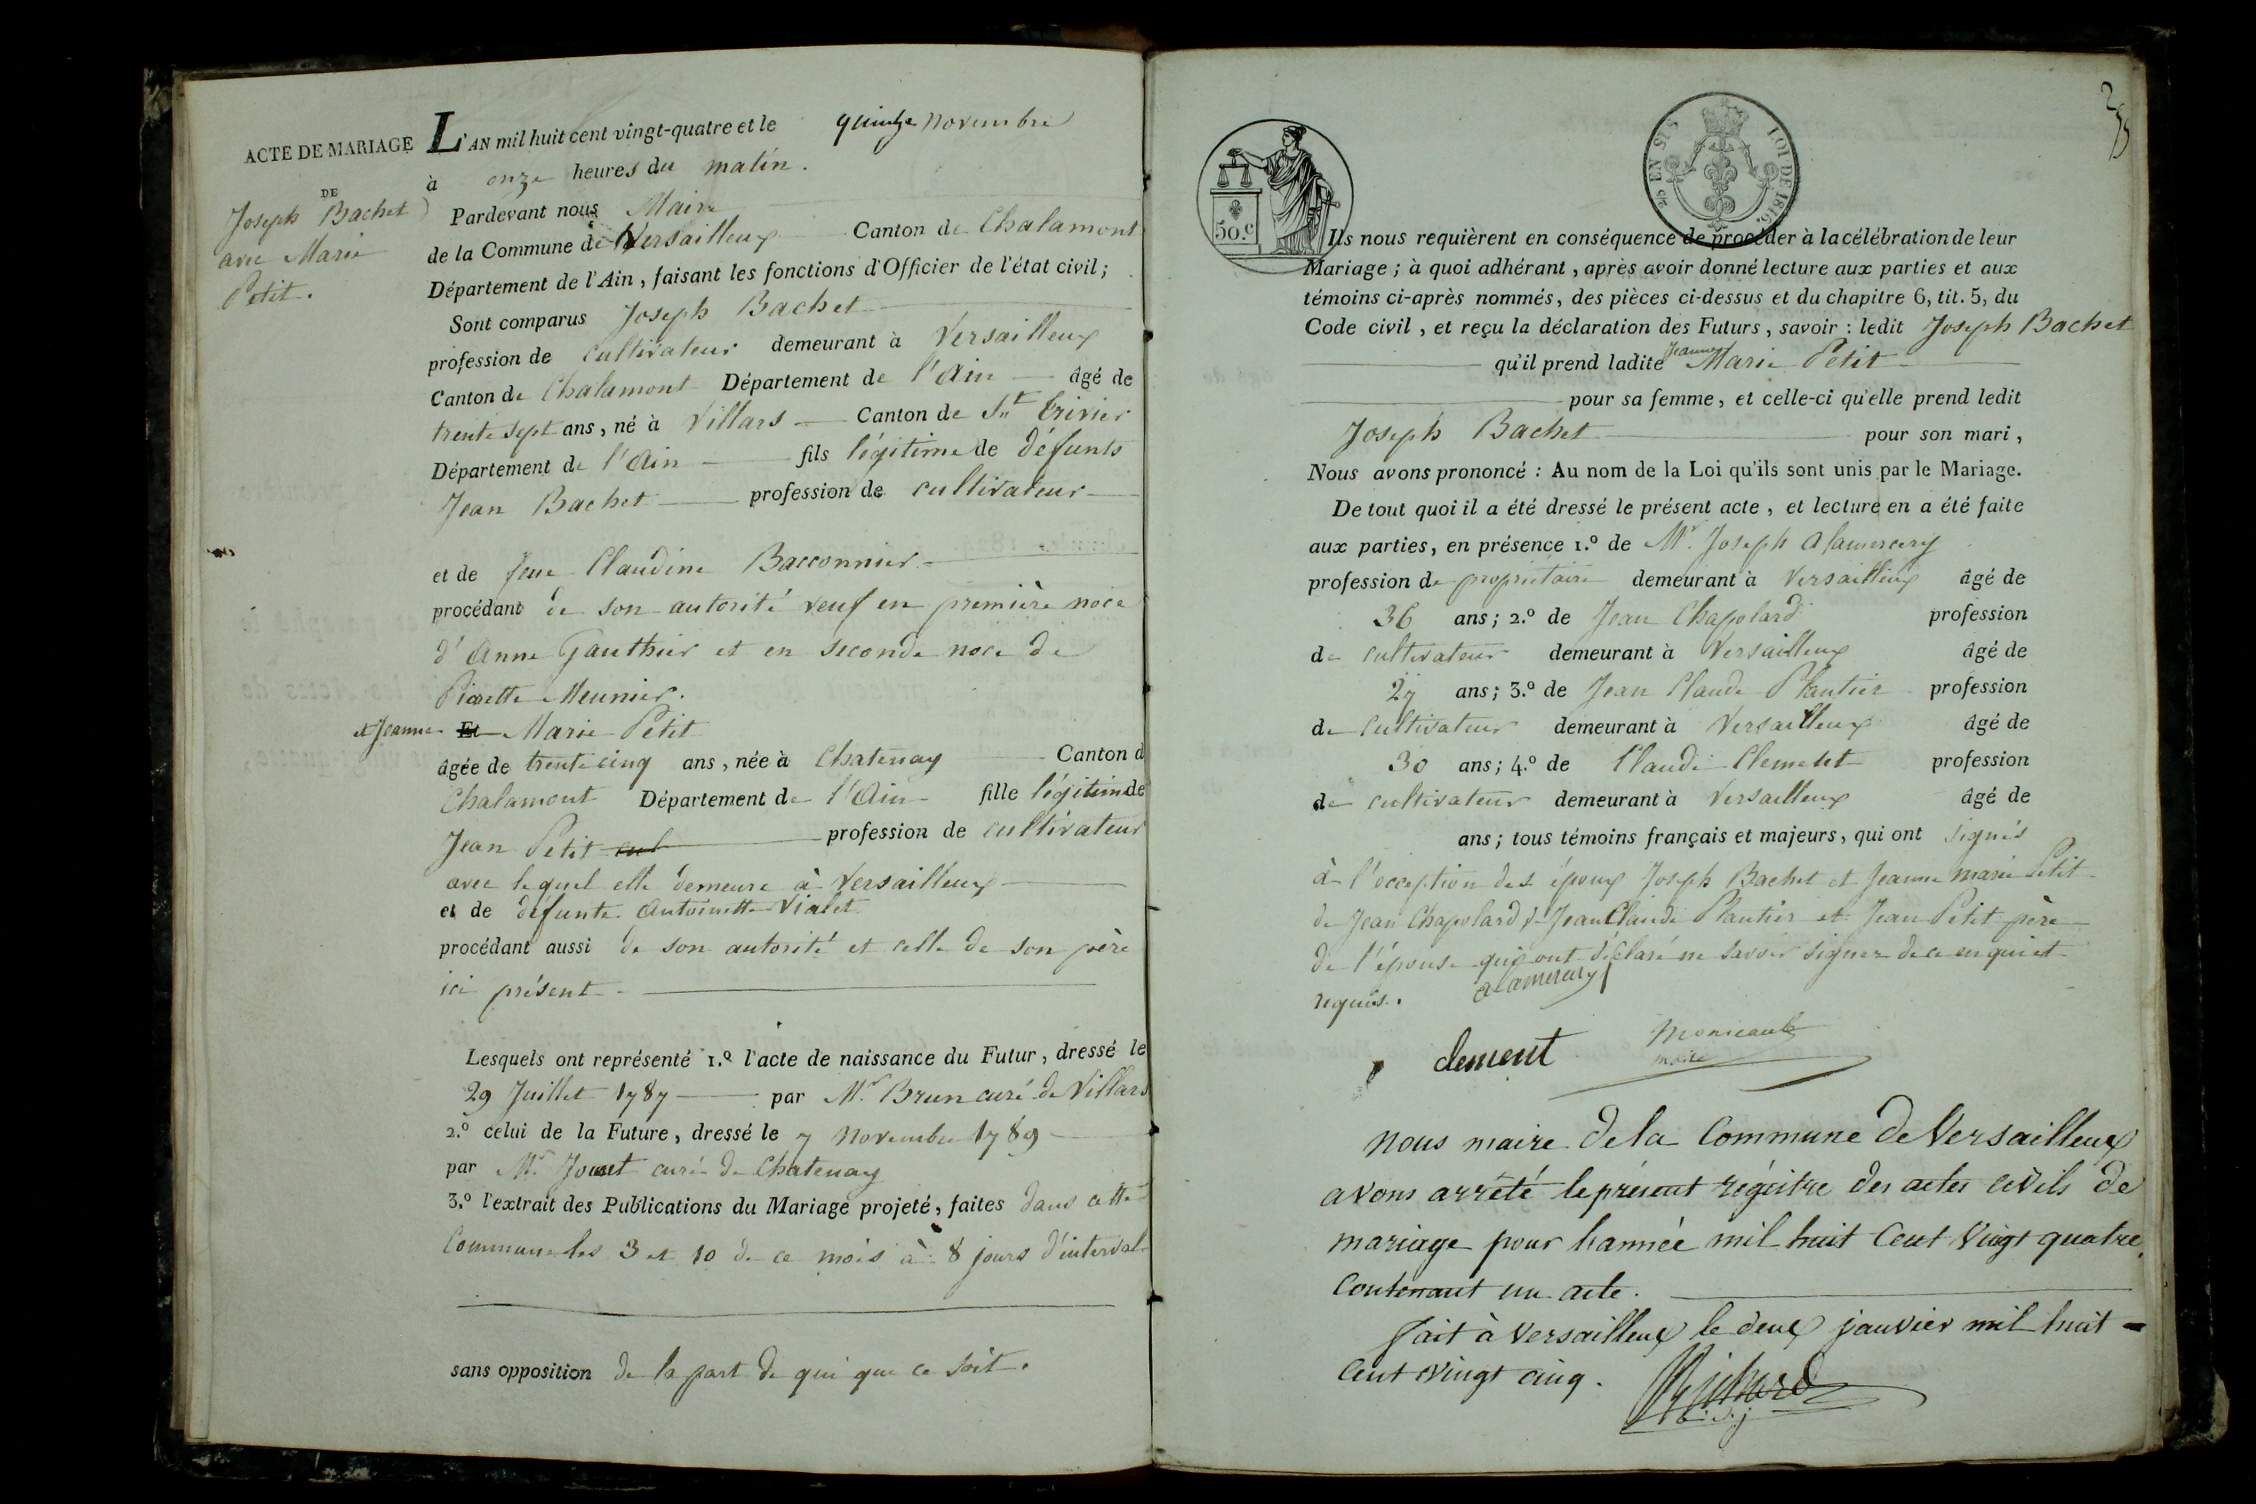 ACTE DE MARIAGE
DE
Joseph Bachet
avec Marie
Petit.
L'AN mil huit cent vingt-quatre et le quinze novembre
à onze heures du matin.
Pardevant nous Maire
de la Commune de Versailleux Canton de Chalamont
Département de l'Ain, faisant les fonctions d'Officier de l'état civil;
Sont comparus Joseph Bachet
profession de cultivateur demeurant à Versailleux
Canton de Chalamont Département de l'Ain âgé de
trente sept ans, né à Villars Canton de St Trivier
Département de l'Ain fils légitime de défunts
Jean Bachet profession de cultivateur
et de feue Claudine Bacconnier
procédant de son autorité veuf en première noce
d'Anne Gauthier et en seconde noce de
Pierrette Meunier.
et Jeanne Et Marie Petit
âgée de trente cinq ans, née à Chatenay Canton d
Chalamont Département de l'Ain fille légitime de
Jean Petit cul profession de cultivateur
avec lequel elle demeure à Versailleux
et de défunte Antoinette Vialet
procédant aussi de son autorité et celle de son père
ici présent.
Lesquels ont représenté 1.º l'acte de naissance du Futur, dressé le
29 Juillet 1787 par Mr. Brun curé de Villars
2.º celui de la Future, dressé le 7 novembre 1789
par Mr Jouet curé de Chatenay
3.º l'extrait des Publications du Mariage projeté, faites dans cette
Commune les 3 et 10 de ce mois à 8 jours d'interval
sans opposition de la part de qui que ce soit.
50.c
EN SUS
LOI DE 1816.
Ils nous requièrent en conséquence de procéder à la célébration de leur
Mariage; à quoi adhérant, après avoir donné lecture aux parties et aux
témoins ci-après nommés, des pièces ci-dessus et du chapitre 6, tit. 5, du
Code civil, et reçu la déclaration des Futurs, savoir: ledit Joseph Bachet
qu'il prend ladite Jeanne Marie Petit
pour sa femme, et celle-ci qu'elle prend ledit
Joseph Bachet pour son mari,
Nous avons prononcé: Au nom de la Loi qu'ils sont unis par le Mariage.
De tout quoi il a été dressé le présent acte, et lecture en a été faite
aux parties, en présence 1.º de Mr. Joseph Alamercery
profession de propriétaire demeurant à Versailleux âgé de
36 ans; 2.º de Jean Chapolard profession
de cultivateur demeurant à Versailleux âgé de
27 ans; 3.º de Jean Claude Plantier profession
de cultivateur demeurant à Versailleux âgé de
30 ans; 4.º de Claude profession
de cultivateur demeurant à Versailleux âgé de
ans; tous témoins français et majeurs, qui ont signés
à l'exception des époux Joseph Bachet et Jeanne marie Petit
de Jean Chapolard, Jean Claude Plantier et Jean Petit père
de l'épouse qui ont déclaré ne savoir signer de ce enquis et
requis.
alamercery
clement
Monicault
maire
nous maire de la Commune de Versailleux
avons arrêté le présent régistre des actes civils de
mariage pour l'année mil huit Cent vingt quatre.
Contenant un acte.
fait à Versailleux le deux janvier mil huit
Cent vingt cinq.